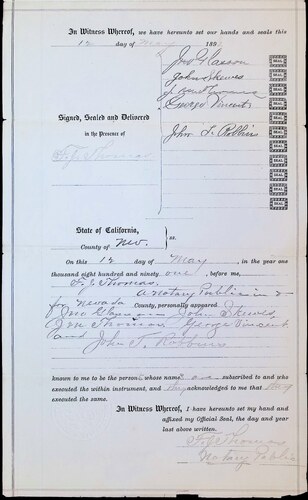 In Witness Whereof, we have hereunto set our hands and seals this
12 day of May 189
Jno Glasson
SEAL
John Skewes
SEAL
SEAL
George Vincent
SEAL
SEAL
Signed, Sealed and Delivered
John T. Robbins
SEAL
in the presence of
SEAL
F. J. Thomas
SEAL
SEAL
SEAL
State of California,
County of Nev. ss.
On this 12 day of May, in the year one
thousand eight hundred and ninety one, before me,
F. J. Thomas,
A Notary Public in &
for Nevada County, personally appeared
Jno Glasson John Skewes,
Jno Thomas, George Vincent
and
John T. Robbins
known to me to be the persons whose names are subscribed to and who
executed the within instrument, and they acknowledged to me that they
executed the same.
In Witness Whereof, I have hereunto set my hand and
affixed my Official Seal, the day and year
last above written.
F. J. Thomas
Notary Public